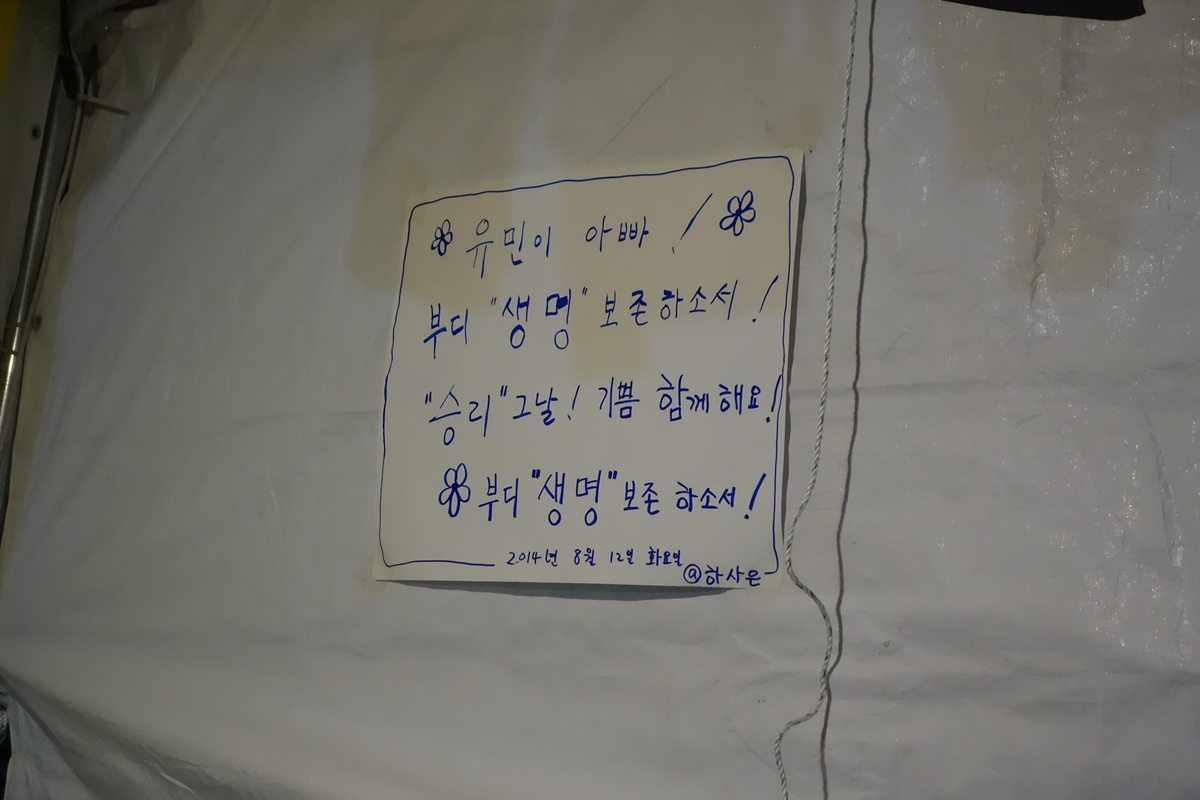 유민이 아빠!
부디 "생명" 보존하소서!
"승리" 그날! 기쁨 함께해요!
부디 "생명" 보존 하소서!
2014년 8월 12일 화요일
@하사은